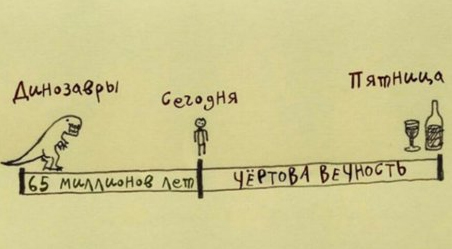 Динозавры
Сегодня
Пятница
65 миллионов лет
ЧЁРТОВА ВЕЧНОСТЬ